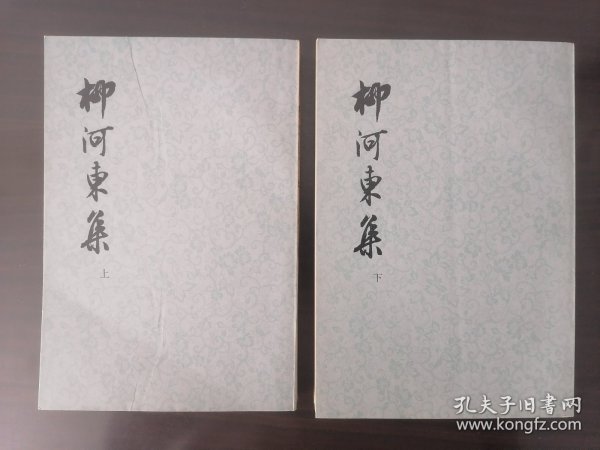 柳河東集
上
柳河東集
下
孔夫子旧書网
www.kongfz.com